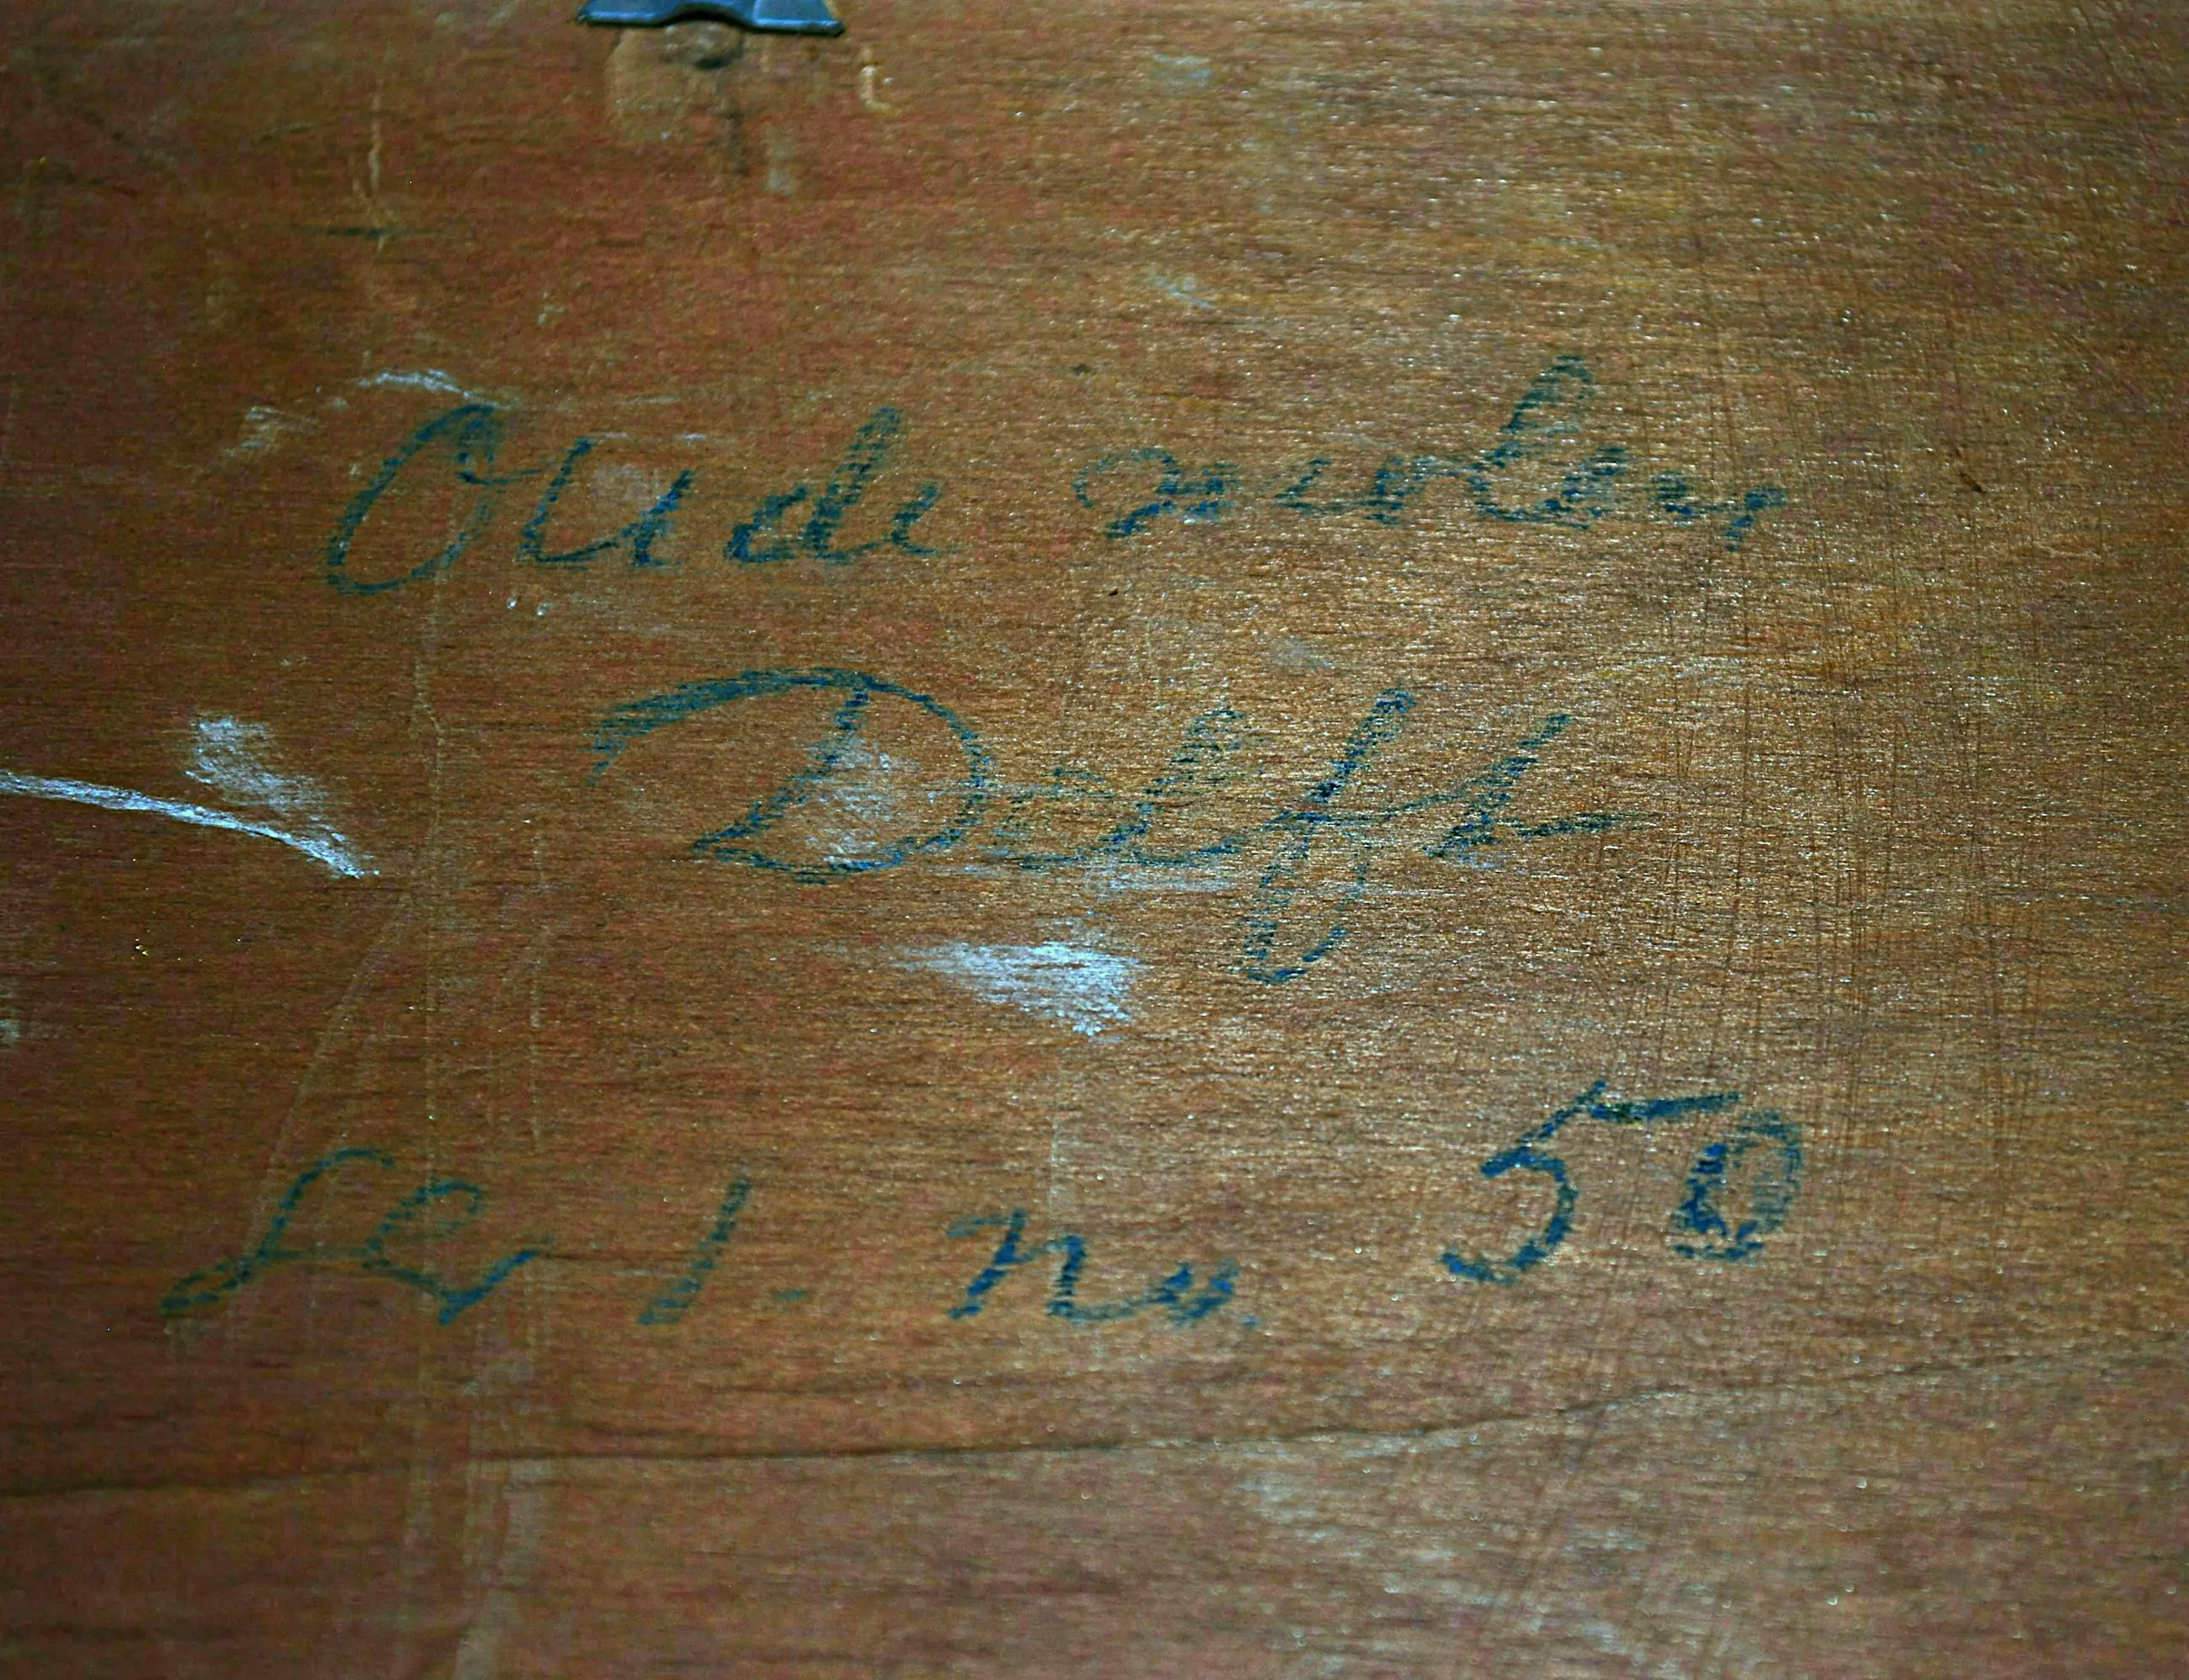 Oude molen
Delft
Ser 1. no. 50